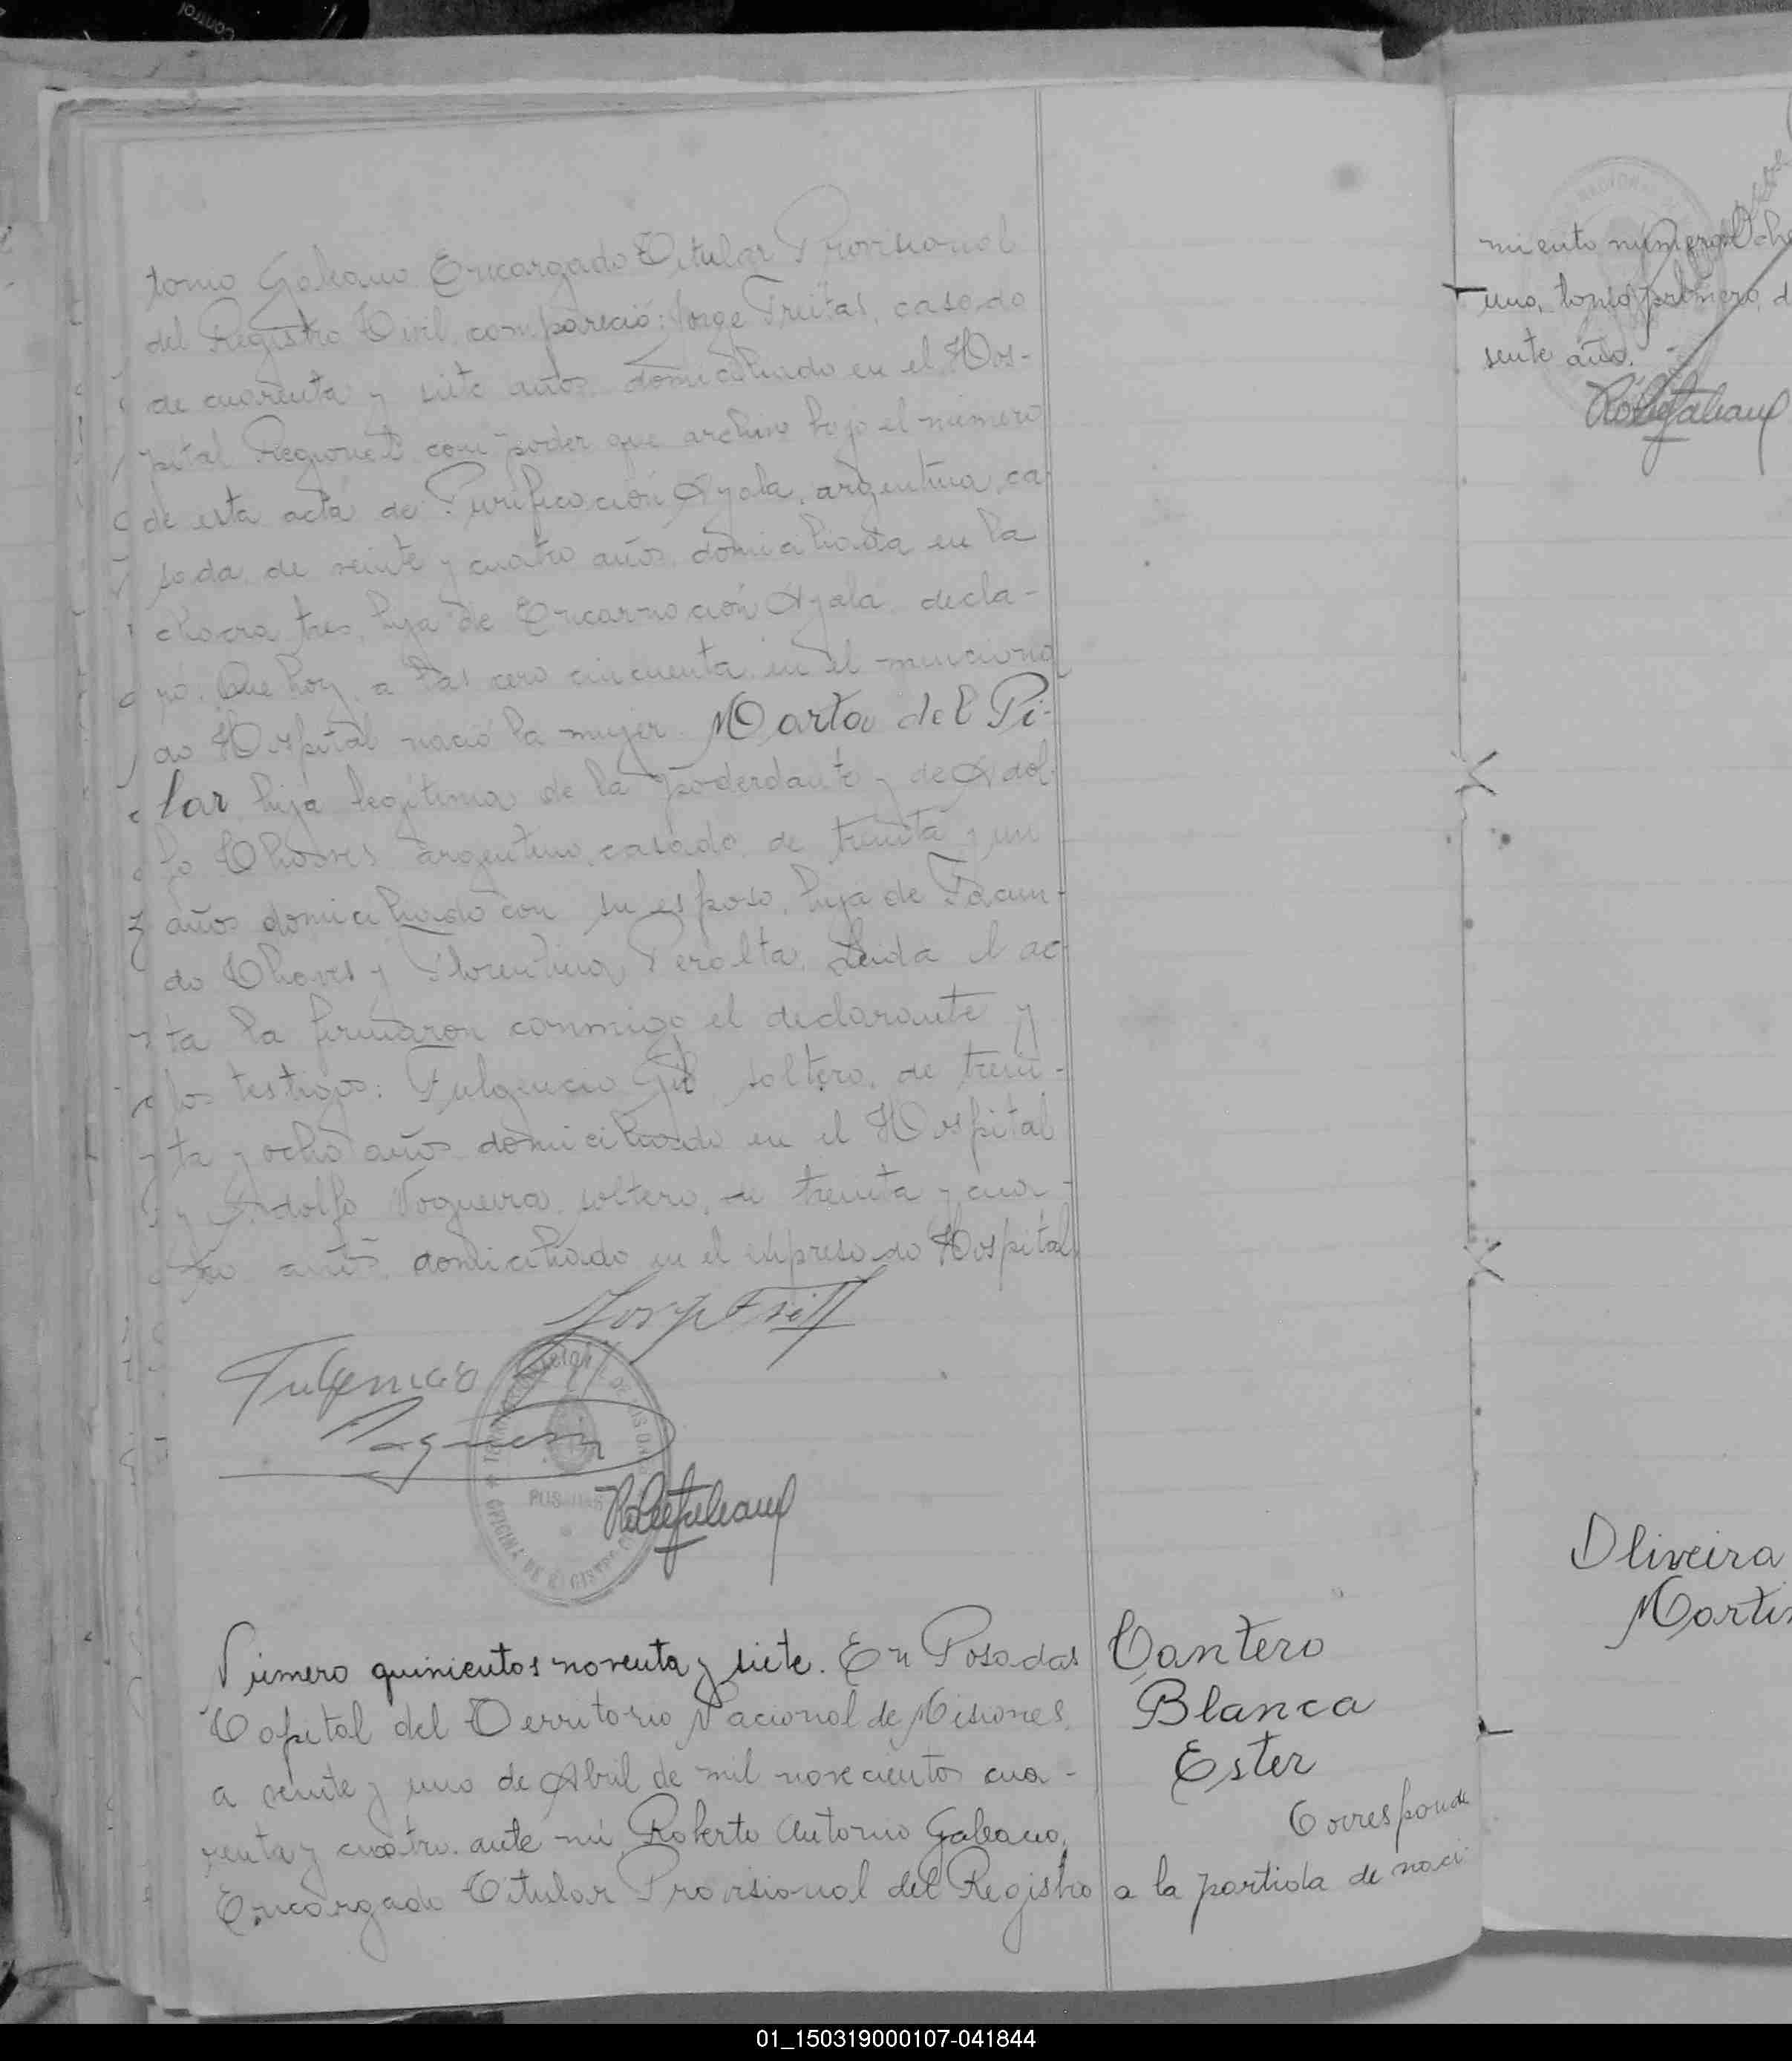 tonio Galeano Encargado Titular Provisional
del Registro Civil, compareció: Jorge Freitas, casado
de cuarenta y siete años domiciliado en el Hos-
pital Regional con poder que archivo bajo el número
de esta acta de Purificación Ayala, argentina, ca
sada de veinte y cuatro años, domiciliada en la
chacra tres, hija de Encarnación Ayala, decla-
ró: Que hoy, a las cero cincuenta en el menciona
do Hospital nació la mujer Marta del Pi-
lar hija legítima de la poderdante y de Adol-
fo Chaves argentino, casado, de treinta y un
años domiciliado con su esposa, hija de Facun-
do Chaves y Florentina Peralta. Leida el ac
ta la firmaron conmigo el declarante y
los testigos: Fulgencio Gil soltero, de trein-
ta y ocho años domiciliado en el Hospital
y Adolfo Nogueira, soltero, de treinta y cua-
tro años domiciliado en el expresado Hospital.
Fulgencio
OFICINA DE REGISTRO
Número quinientos noventa y siete. En Posadas
Capital del Territorio Nacional de Misiones,
a veinte y uno de Abril de mil novecientos cua-
renta y cuatro, ante mí, Roberto Antonio Galeano,
Encargado Titular Provisional del Registro
Cantero
Blanca
Ester
Corresponde
a la partida de naci-
miento número Oche
uno, tomo primero, d
sente año.
Oliveira
Marti
01_150319000107-041844